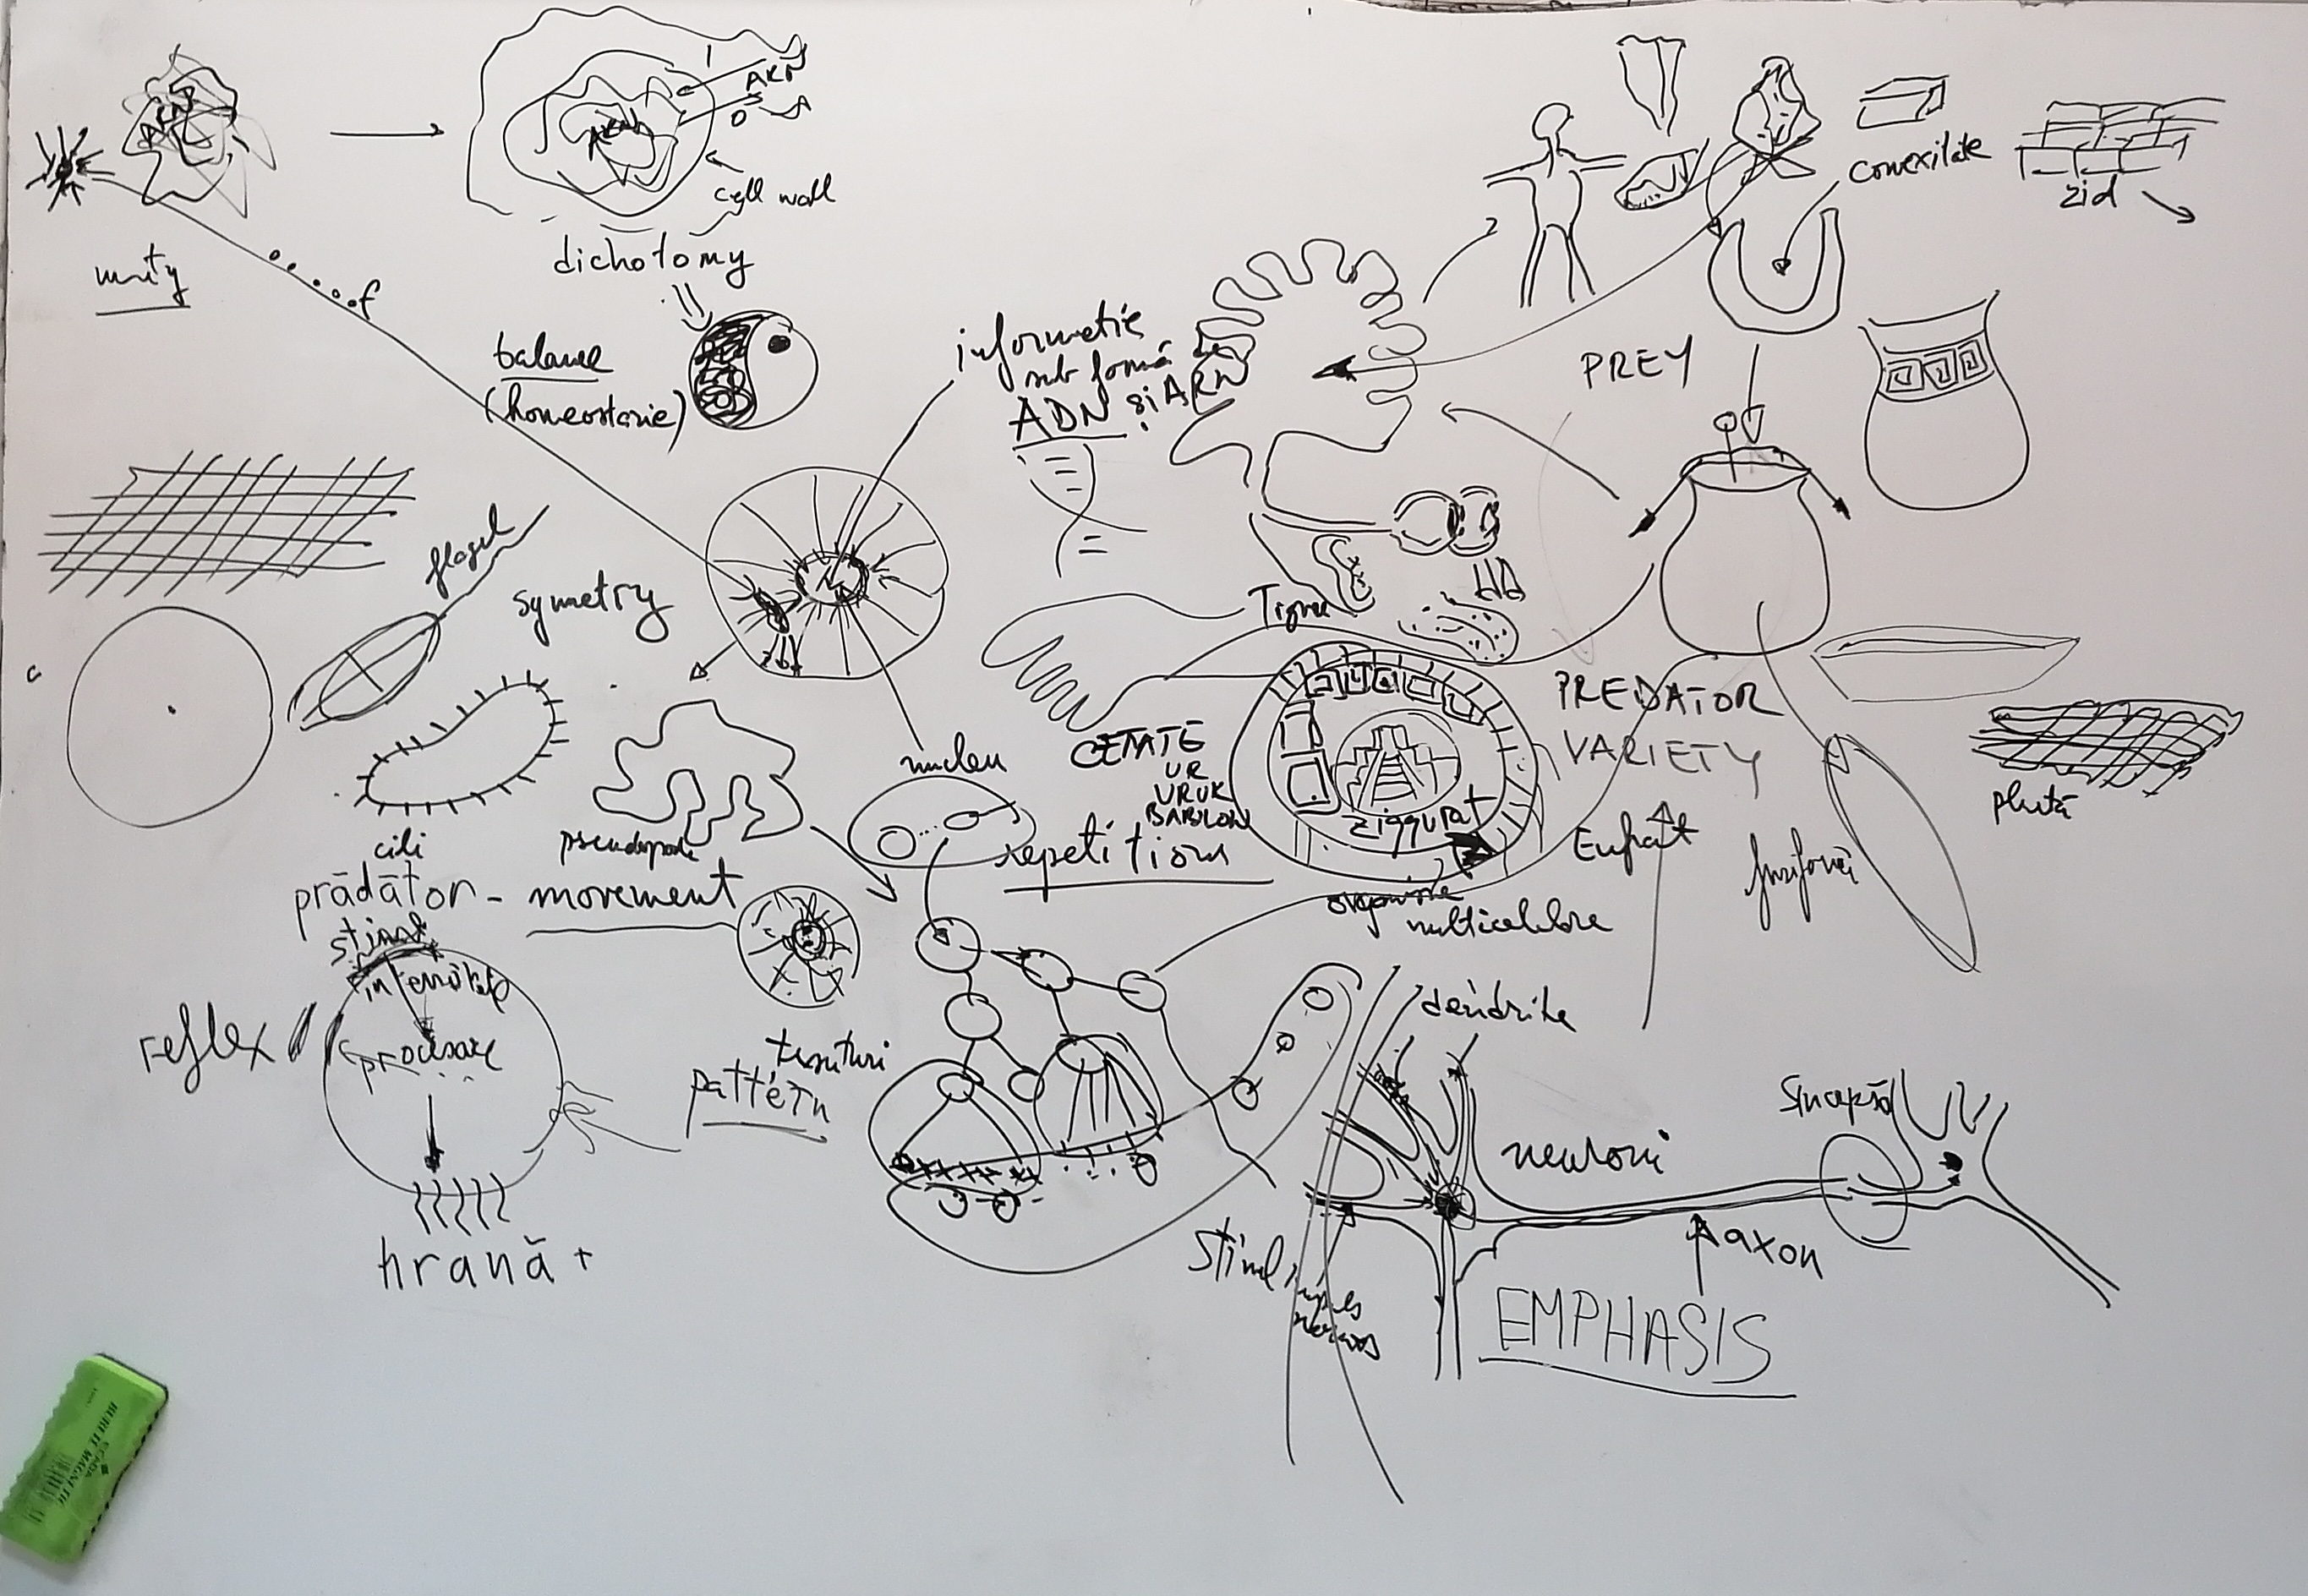 ARN
cell wall
unity
dichotomy
conexitate
zid
balance
(homeostazie)
informatie
sub formă de
ADN și ARN
PREY
flagel
symetry
Tigru
PREDATOR
VARIETY
nucleu
CETATE
UR
URUK
BABILON
ziggurat
Eufrat
plută
cili
pseudopode
repetition
prădător - movement
organisme
multicelulare
reflex
procesare
țesuturi
pattern
dendrite
sinapsă
neuroni
hrană +
axon
impuls
nervos
EMPHASIS